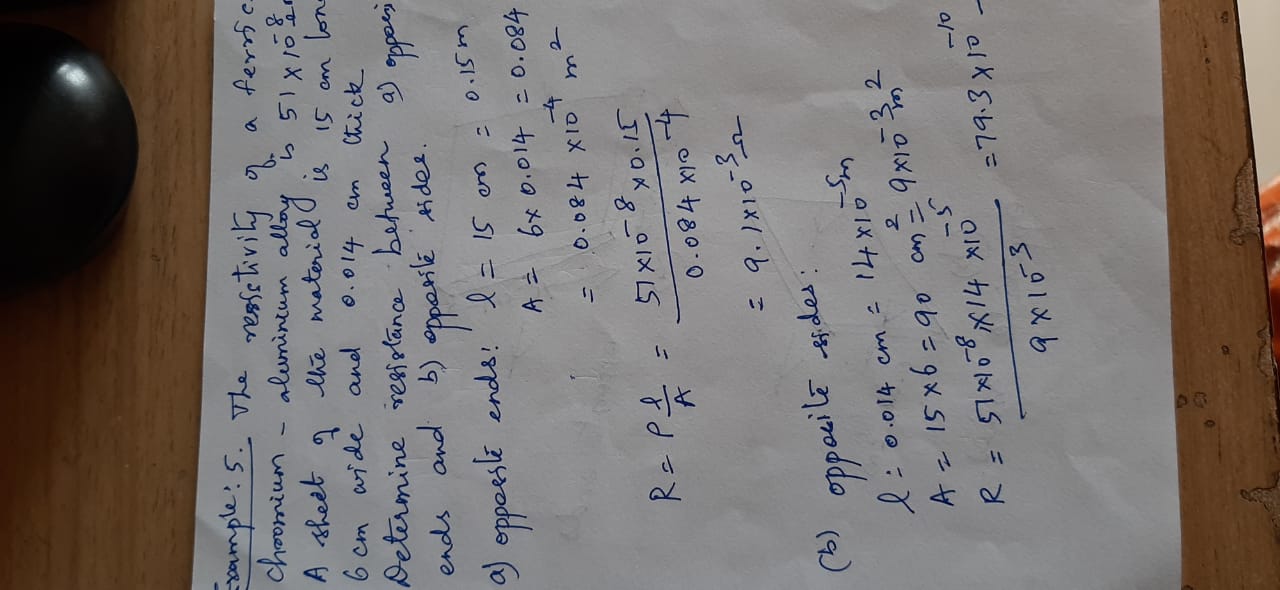 Example: 5. The resistivity of a ferric
chromium - aluminium alloy is 51 x 10^-8
A sheet of the material is 15 cm long
6 cm wide and 0.014 cm thick
Determine resistance between a) opposi
ends and b) opposite sides.
a) opposite ends: l = 15 cm = 0.15 m
A = 6 x 0.014 = 0.084
= 0.084 x 10^-4 m^2
R = ρ l/A = 51 x 10^-8 x 0.15 / 0.084 x 10^-4
= 9.1 x 10^-3 Ω
(b) opposite sides:
l = 0.014 cm = 14 x 10^-5 m
A = 15 x 6 = 90 cm^2 = 9 x 10^-3 m^2
R = 51 x 10^-8 x 14 x 10^-5 / 9 x 10^-3 = 79.3 x 10^-10